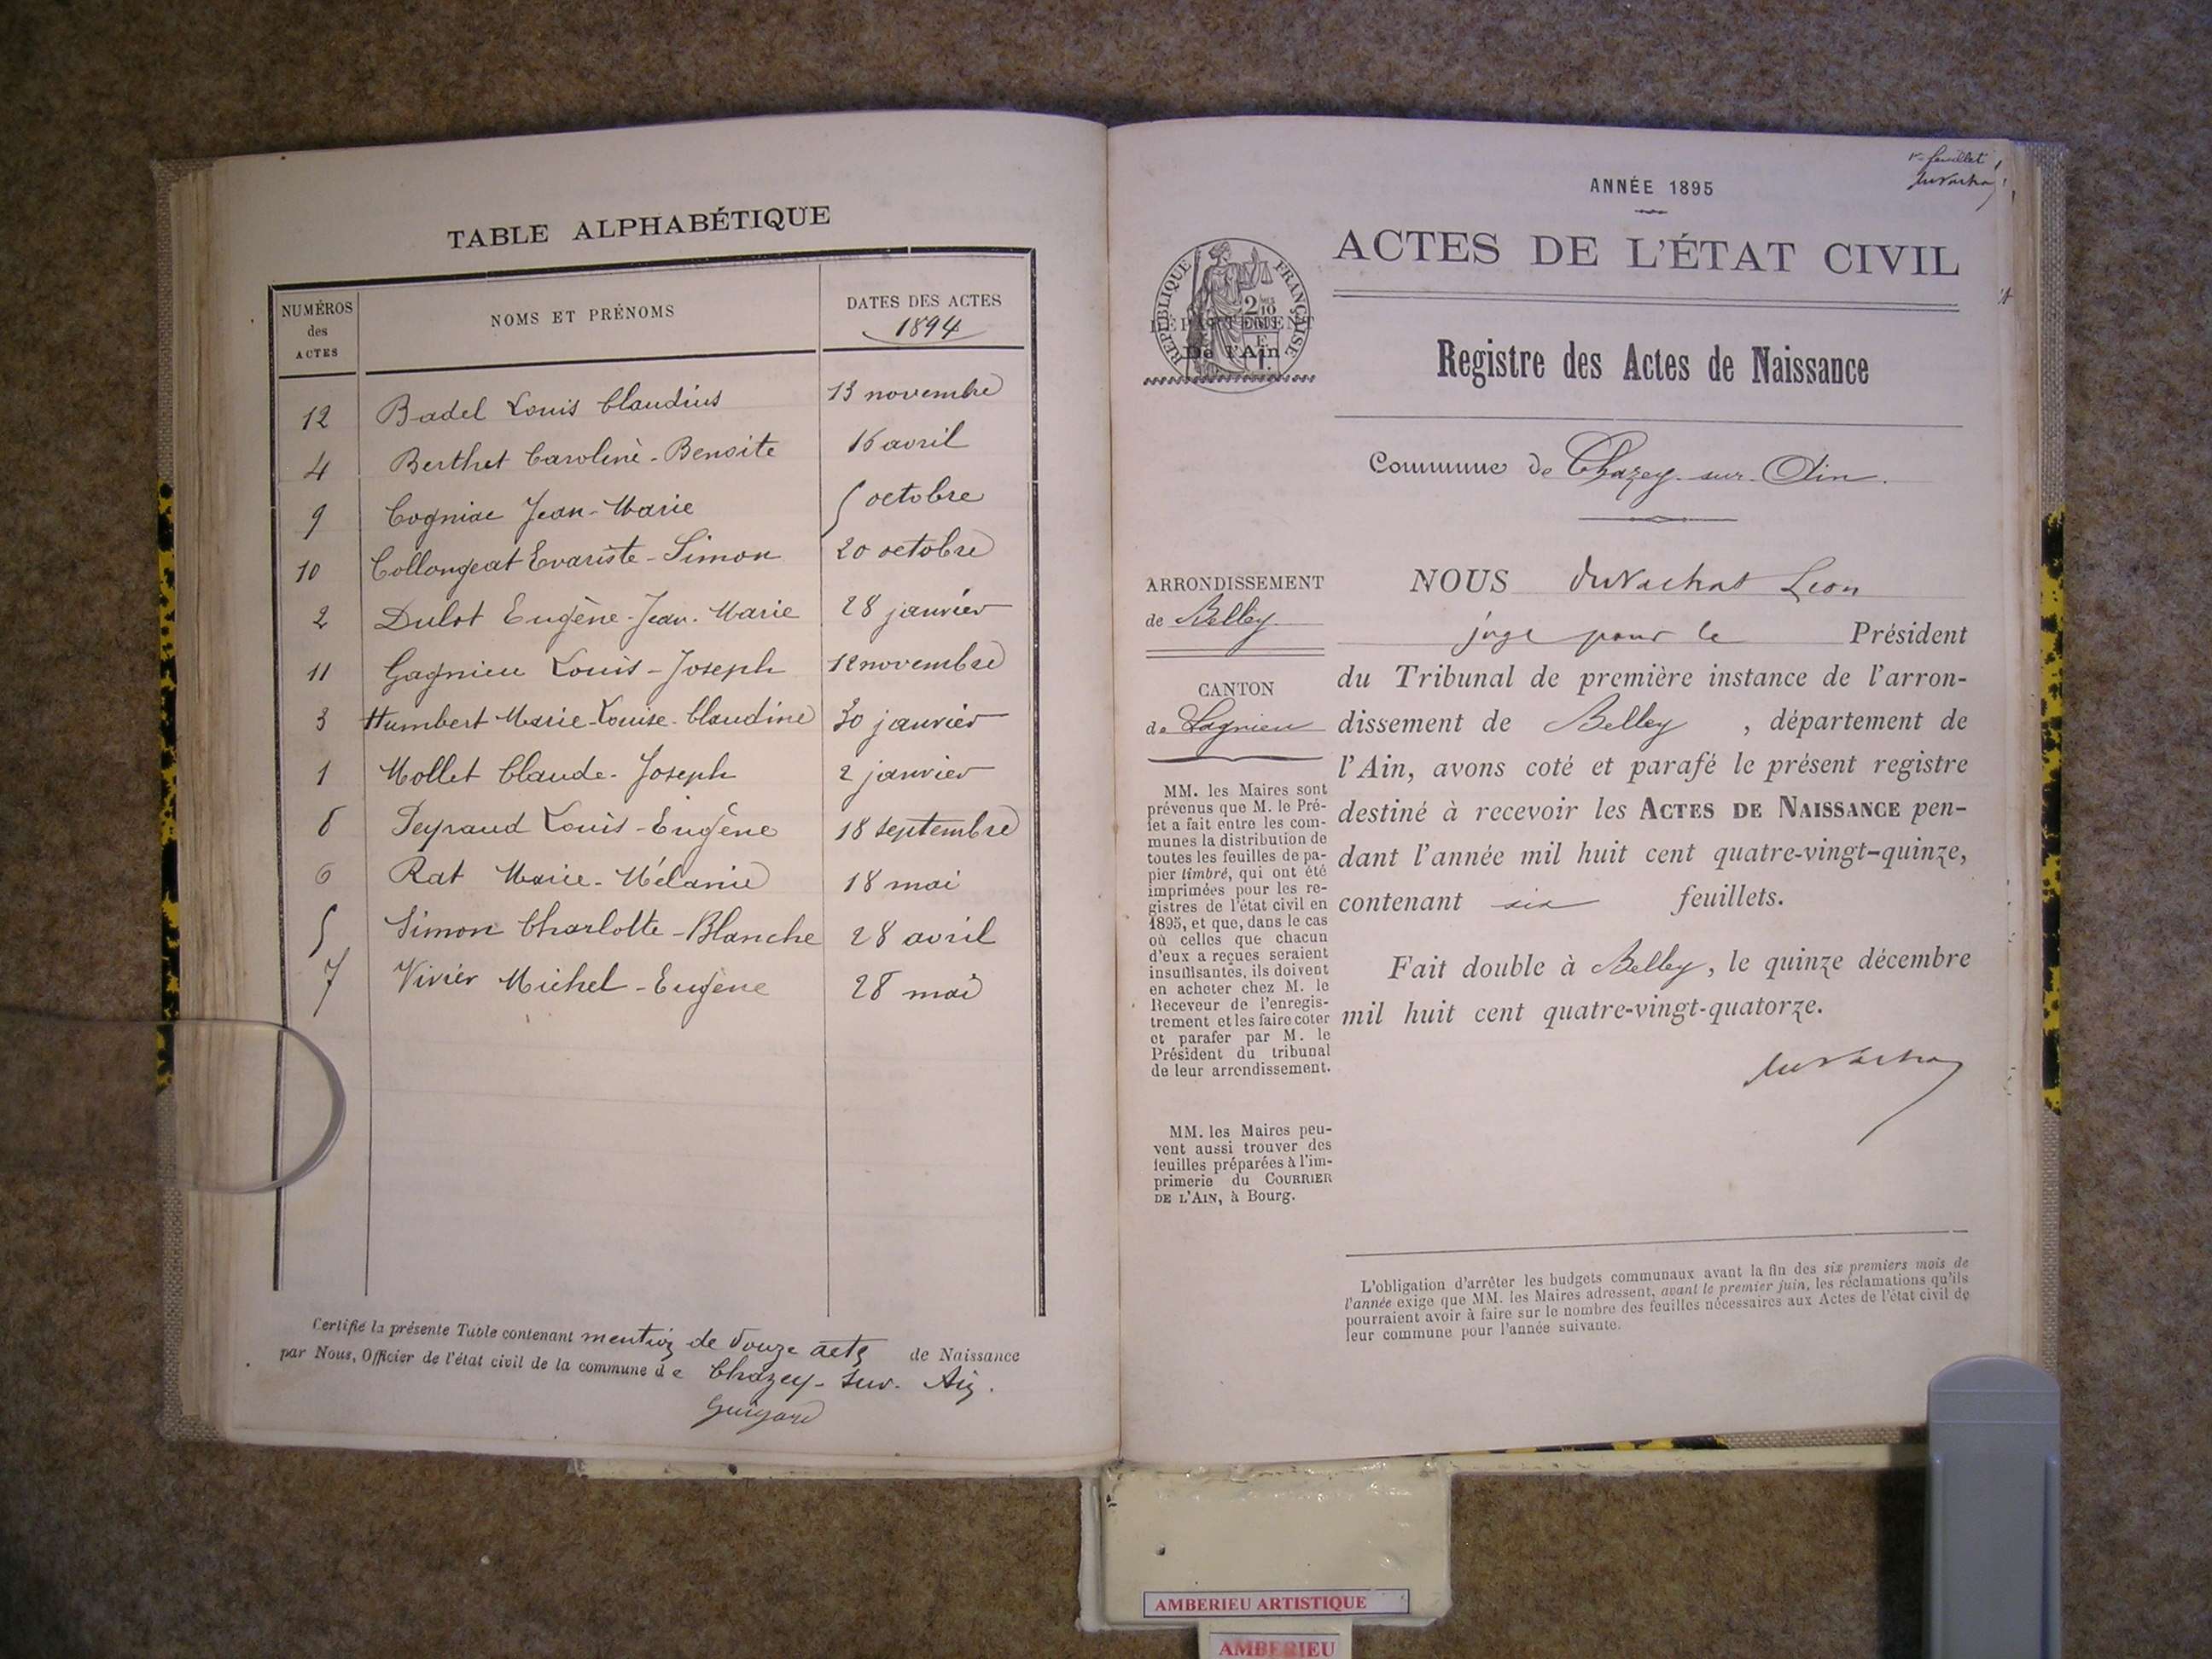 TABLE ALPHABÉTIQUE
NUMÉROS des ACTES
NOMS ET PRÉNOMS
DATES DES ACTES
1894
12 Badel Louis Claudius 13 novembre
4 Berthet Caroline-Benoite 16 avril
9 Cogniac Jean-Marie 5 octobre
10 Collongeat Evariste-Simon 20 octobre
2 Dulot Eugène-Jean-Marie 28 janvier
11 Gagnieu Louis-Joseph 12 novembre
3 Humbert Marie-Louise-Claudine 30 janvier
1 Mollet Claude-Joseph 2 janvier
8 Peyraud Louis-Eugène 18 septembre
6 Rat Marie-Mélanie 18 mai
5 Simon Charlotte-Blanche 28 avril
7 Vivier Michel-Eugène 28 mai
Certifié la présente Table contenant mention de douze actes de Naissance
par Nous, Officier de l'état civil de la commune de Chazey-sur-Ain.
Guigard
1er feuillet
ANNÉE 1895
ACTES DE L'ÉTAT CIVIL
RÉPUBLIQUE FRANÇAISE
DÉPARTEMENT
De l'Ain
Registre des Actes de Naissance
Commune de Chazey-sur-Ain.
ARRONDISSEMENT
de Belley
CANTON
de Lagnieu
MM. les Maires sont
prévenus que M. le Pré-
fet a fait entre les com-
munes la distribution de
toutes les feuilles de pa-
pier timbré, qui ont été
imprimées pour les re-
gistres de l'état civil en
1895, et que, dans le cas
où celles que chacun
d'eux a reçues seraient
insuffisantes, ils doivent
en acheter chez M. le
Receveur de l'enregis-
trement et les faire coter
et parafer par M. le
Président du tribunal
de leur arrondissement.
MM. les Maires peu-
vent aussi trouver des
feuilles préparées à l'im-
primerie du COURRIER
DE L'AIN, à Bourg.
NOUS Duvachat Leon
juge pour le Président
du Tribunal de première instance de l'arron-
dissement de Belley, département de
l'Ain, avons coté et parafé le présent registre
destiné à recevoir les ACTES DE NAISSANCE pen-
dant l'année mil huit cent quatre-vingt-quinze,
contenant six feuillets.
Fait double à Belley, le quinze décembre
mil huit cent quatre-vingt-quatorze.
L'obligation d'arrêter les budgets communaux avant la fin des six premiers mois de
l'année exige que MM. les Maires adressent, avant le premier juin, les réclamations qu'ils
pourraient avoir à faire sur le nombre des feuilles nécessaires aux Actes de l'état civil de
leur commune pour l'année suivante.
AMBERIEU ARTISTIQUE
AMBERIEU